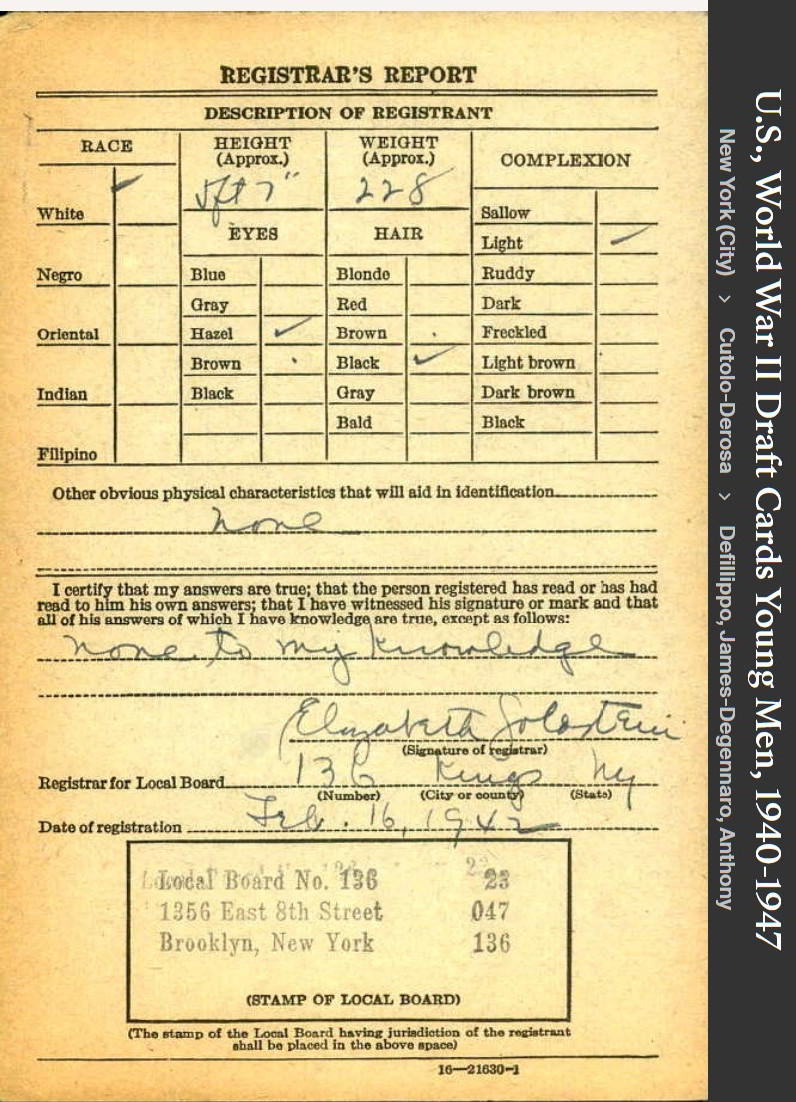 REGISTRAR'S REPORT
DESCRIPTION OF REGISTRANT
RACE
HEIGHT
(Approx.)
WEIGHT
(Approx.)
COMPLEXION
5ft 7"
228
White
EYES
HAIR
Sallow
Light
Negro
Blue
Blonde
Ruddy
Gray
Red
Dark
Oriental
Hazel
Brown
Freckled
Brown
Black
Light brown
Indian
Black
Gray
Dark brown
Bald
Black
Filipino
Other obvious physical characteristics that will aid in identification
none
I certify that my answers are true; that the person registered has read or has had
read to him his own answers; that I have witnessed his signature or mark and that
all of his answers of which I have knowledge are true, except as follows:
none to my knowledge
Elizabeth Goldstein
(Signature of registrar)
Registrar for Local Board 136 Kings Ny
(Number) (City or county) (State)
Date of registration Feb. 16, 1942
Local Board No. 136 23
1356 East 8th Street 047
Brooklyn, New York 136
(STAMP OF LOCAL BOARD)
(The stamp of the Local Board having jurisdiction of the registrant
shall be placed in the above space)
16—21630-1
U.S., World War II Draft Cards Young Men, 1940-1947
New York (City) > Cutolo-Derosa > Defillippo, James-Degennaro, Anthony